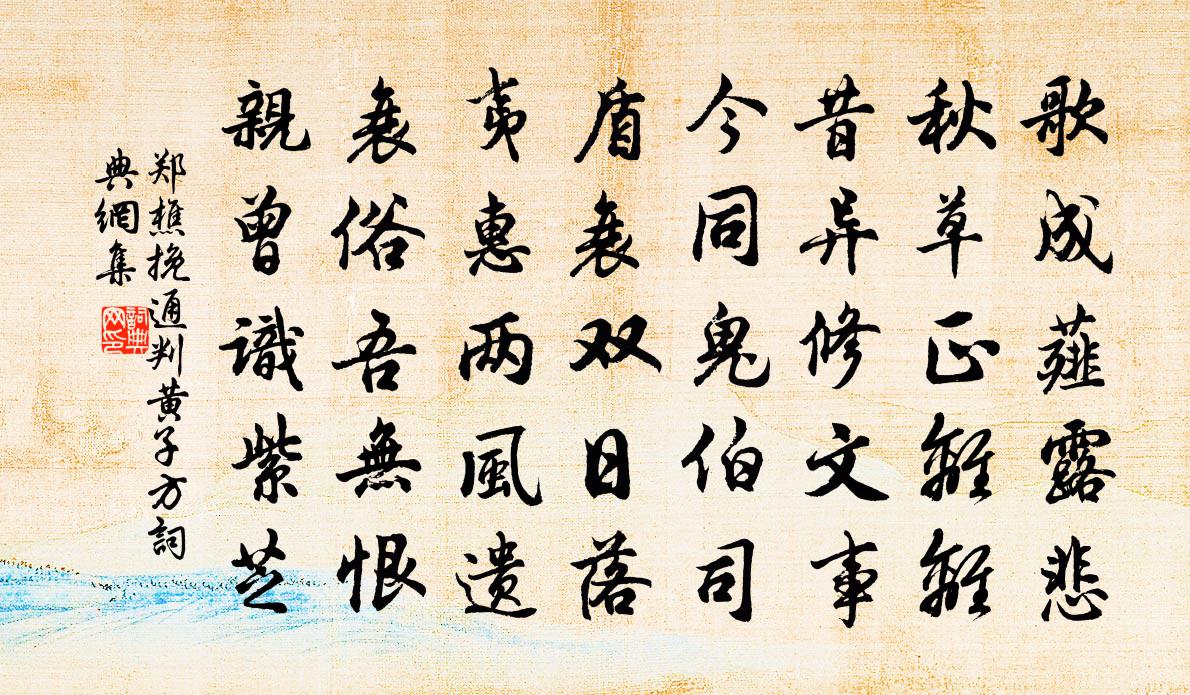 歌成薤露悲
秋草正離離
昔异修文事
今同鬼伯司
盾衰双日落
夷惠两風遗
衰俗吾無恨
親曾識紫芝
郑樵挽通判黄子方詞
典網集
詞典
网印